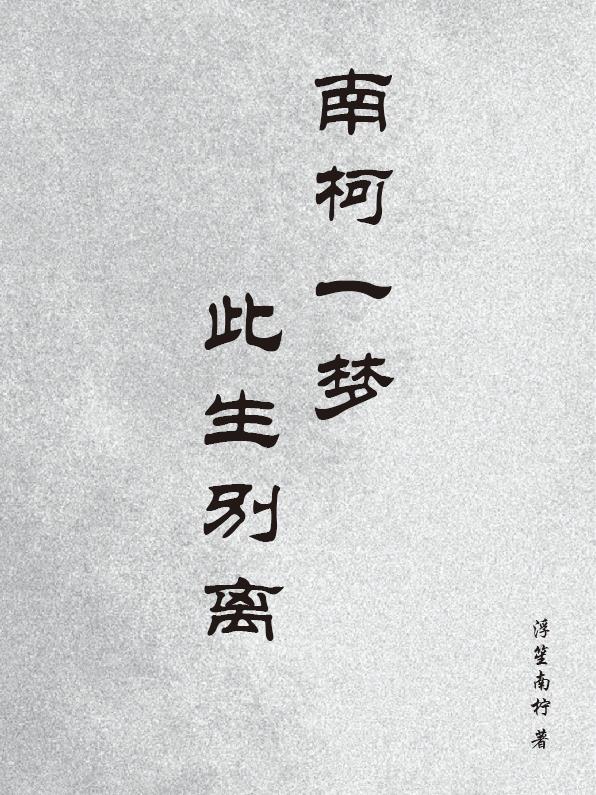 南柯一梦
此生别离
浮笙南柠 著